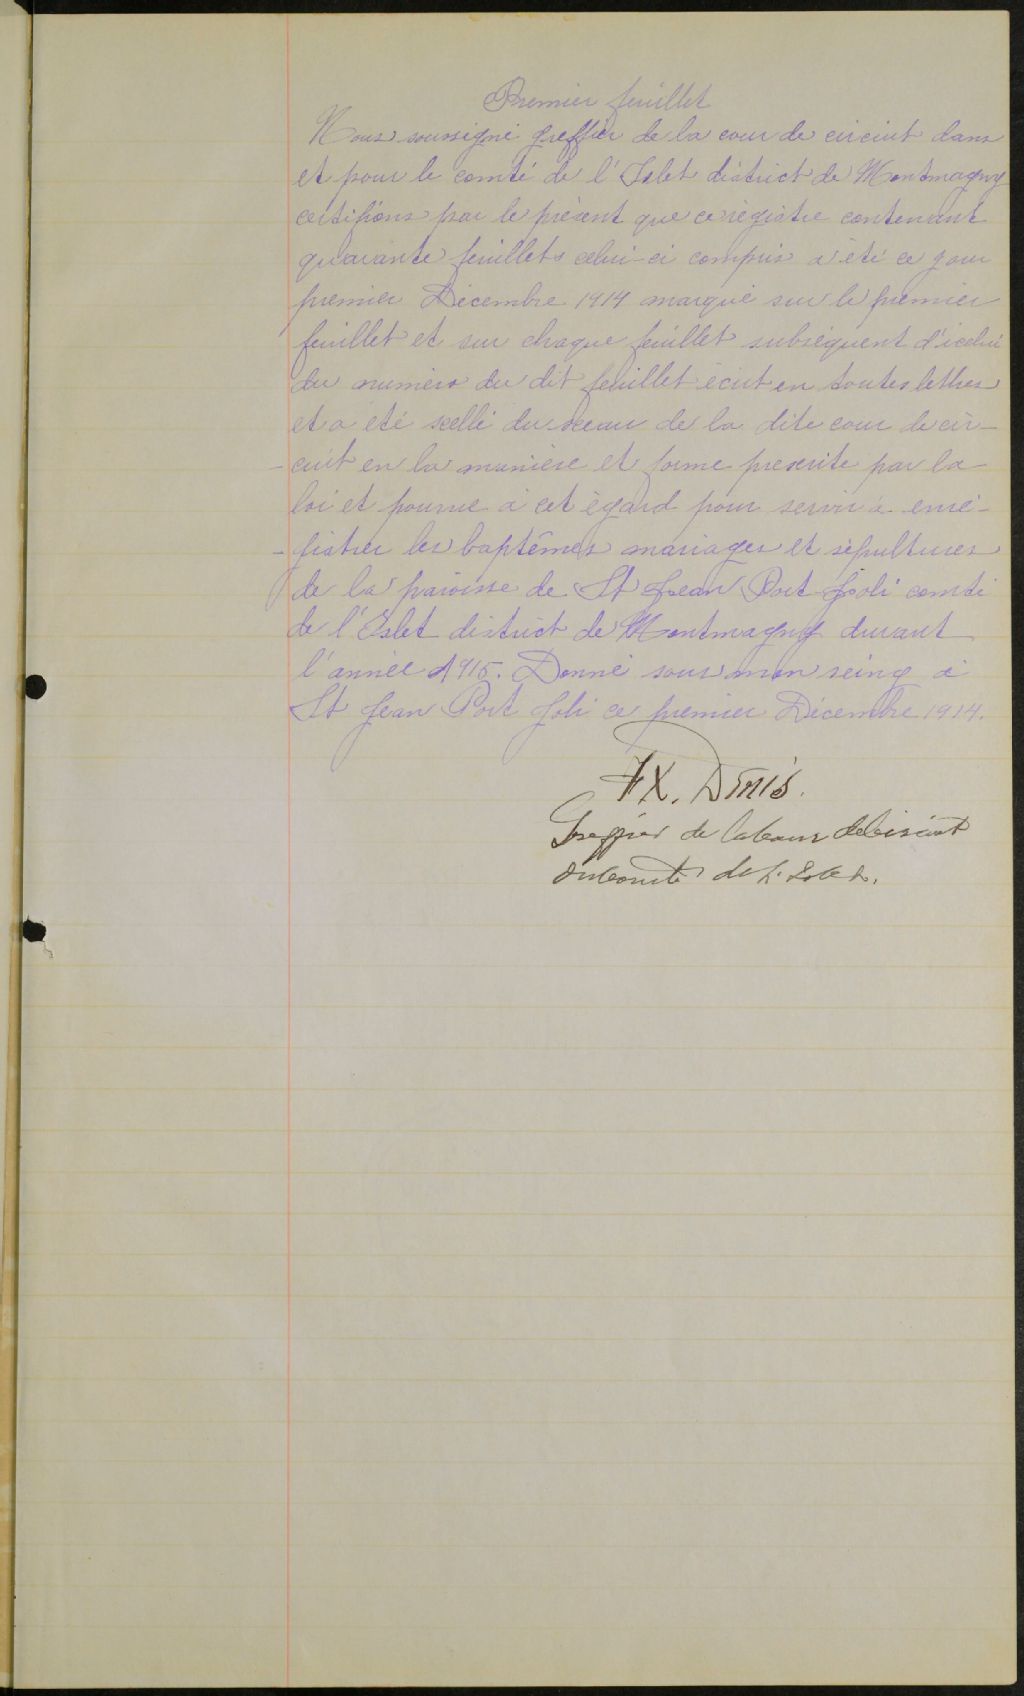 Premier feuillet
Nous soussigné greffier de la cour de circuit dans
et pour le comté de l'Islet district de Montmagny
certifions par le présent que ce régistre contenant
quarante feuillets celui-ci compris a été ce jour
premier Décembre 1914 marqué sur le premier
feuillet et sur chaque feuillet subséquent d'icelui
du numéro du dit feuillet écrit en toutes lettres
et a été scellé du sceau de la dite cour de cir-
-cuit en la manière et forme prescrite par la
loi et pourvue à cet égard pour servir à enré-
-gistrer les baptêmes mariages et sépultures
de la paroisse de St Jean Port Joli comté
de l'Islet district de Montmagny durant
l'année 1915. Donné sous mon seing à
St Jean Port Joli ce premier Décembre 1914.
FX. Dénis.
Greffier de la Cour de Circuit
du Comté de L'Islet.